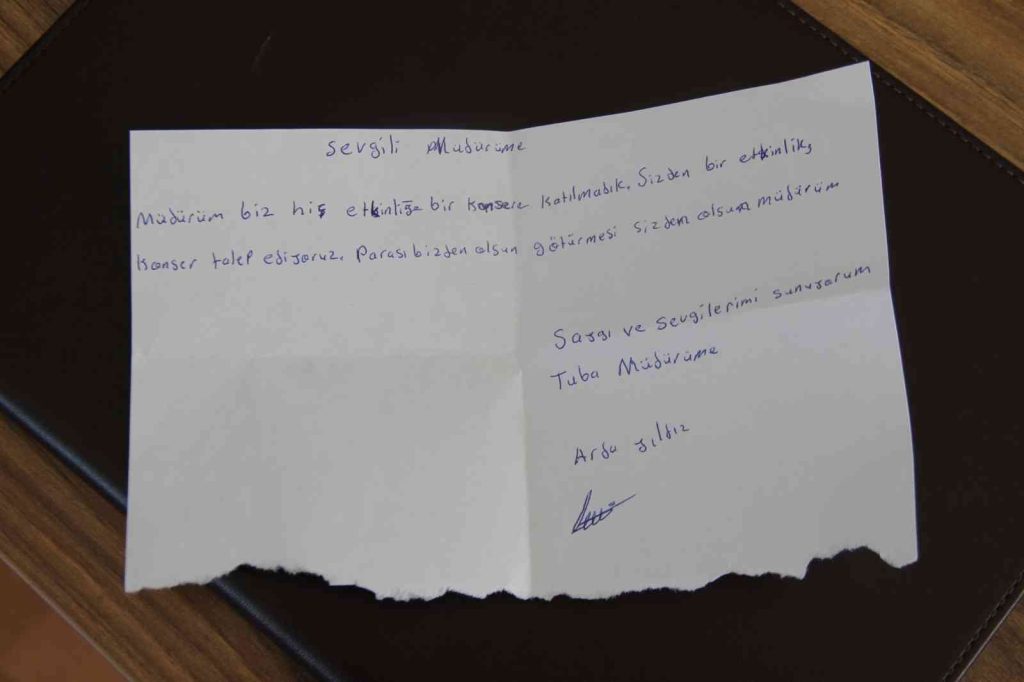 Sevgili Müdürüme
Müdürüm biz hiç etkinliğe bir konsere katılmadık. Sizden bir etkinlik,
konser talep ediyoruz. Parası bizden olsun götürmesi sizden olsun müdürüm
Saygı ve sevgilerimi sunuyorum
Tuba Müdürüme
Arda Yıldız